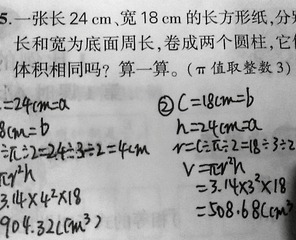 5.一张长24 cm、宽18 cm的长方形纸,分
长和宽为底面周长,卷成两个圆柱,它
体积相同吗?算一算。(π值取整数3)
=24cm=a
8cm=b
÷π÷2=24÷3÷2=4cm
πr²h
3.14×4²×18
904.32(cm³)
②C=18cm=b
h=24cm=a
r=C÷π÷2=18÷3÷2
V=πr²h
=3.14×3²×18
=508.68(cm³)